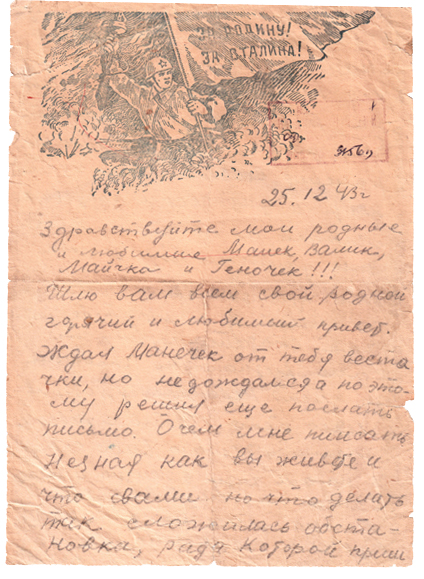 ЗА РОДИНУ!
ЗА СТАЛИНА!
25.12.43г
Здравствуйте мои родные
и любимые Манек, Валик,
Майчка и Геночек!!!
Шлю вам всем свой родной
горячий и любимый привет.
Ждал Манечек от тебя веста
чки, но не дождался а по это-
му решил еще послать
письмо. О чем мне писать
Незная как вы живете и
что свами но что делать
так сложилась обста-
новка, ридя которой приш